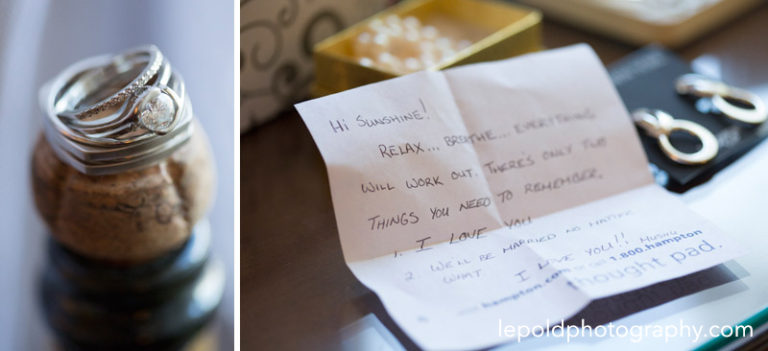 Hi Sunshine!
RELAX... BREATHE... EVERYTHING
WILL WORK OUT. THERE'S ONLY TWO
THINGS YOU NEED TO REMEMBER.
1. I LOVE YOU
2. WE'LL BE MARRIED NO MATTER
WHAT. I LOVE YOU!!
hampton.com 1.800.hampton
thought pad.
lepoldphotography.com